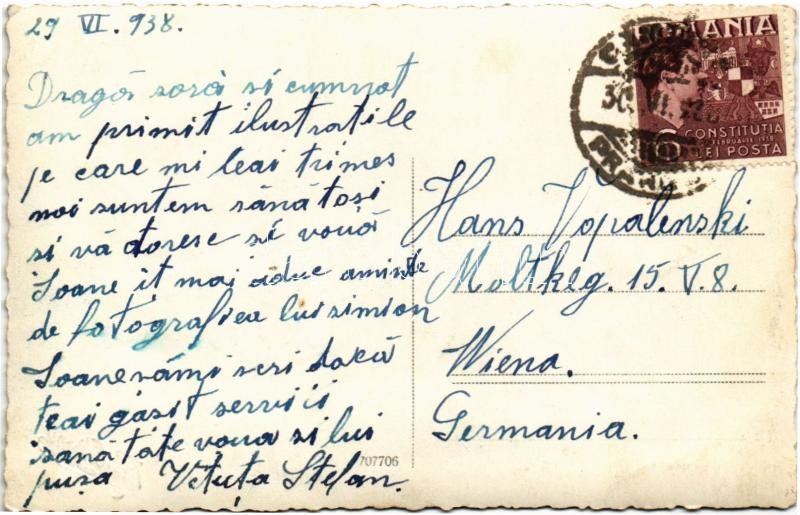 29 VI. 938.
Dragă soră si cumnat
am primit ilustratile
pe care mi leai trimes
noi suntem sănătosi
si vă doresc si vouă
Ioane it mai aduc aminte
de fotografiea lui simion
Ioane sămi scri dacă
teai găsit servicii
sanatate voua si lui
pusa Vetuța Stefan.
ROMANIA
CONSTITUTIA
27 FEBRUARIE 1938
6 LEI POSTA
30. VI. 938
Hans Vopalenski
Moltkeg. 15. V. 8.
Wiena.
Germania.
707706